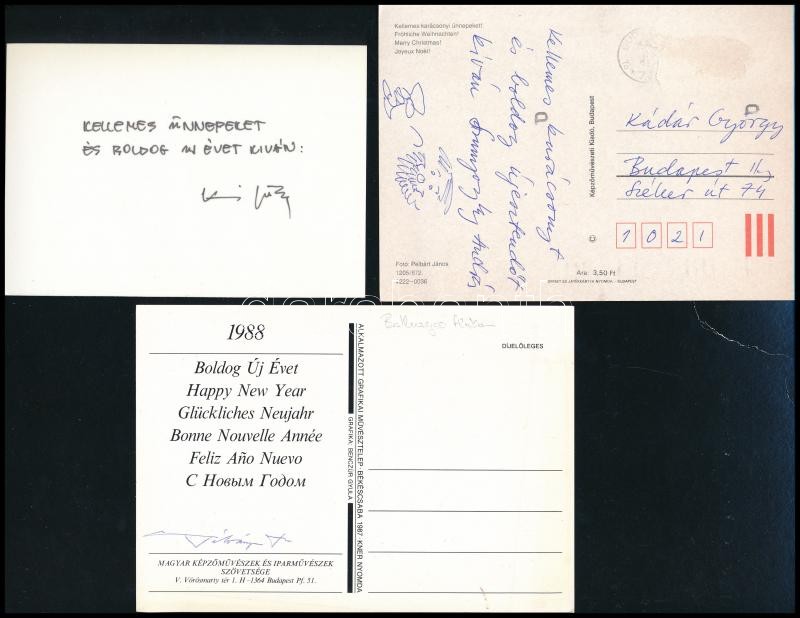 KELLEMES ÜNNEPEKET
ÉS BOLDOG ÚJ ÉVET KIVÁN:
Kellemes karácsonyi ünnepeket!
Fröhliche Weihnachten!
Merry Christmas!
Joyeux Noël!
Kellemes karácsonyt
és boldog újesztendőt
kíván András
Fotó: Pelbárt János
1205/872.
4222—0036
Képzőművészeti Kiadó, Budapest
©
Kádár György
Budapest II.
Széher út 74
1 0 2 1
Ara: 3,50 Ft
OFFSET ÉS JÁTÉKKÁRTYA NYOMDA - BUDAPEST
darabanth
1988
Boldog Új Évet
Happy New Year
Glückliches Neujahr
Bonne Nouvelle Année
Feliz Año Nuevo
С Новым Годом
MAGYAR KÉPZŐMŰVÉSZEK ÉS IPARMŰVÉSZEK
SZÖVETSÉGE
V. Vörösmarty tér 1. H-1364 Budapest Pf. 51.
ALKALMAZOTT GRAFIKAI MŰVÉSZTELEP - BÉKÉSCSABA 1987 - KNER NYOMDA
GRAFIKA: BENCZÚR GYULA
DÍJELŐLEGES